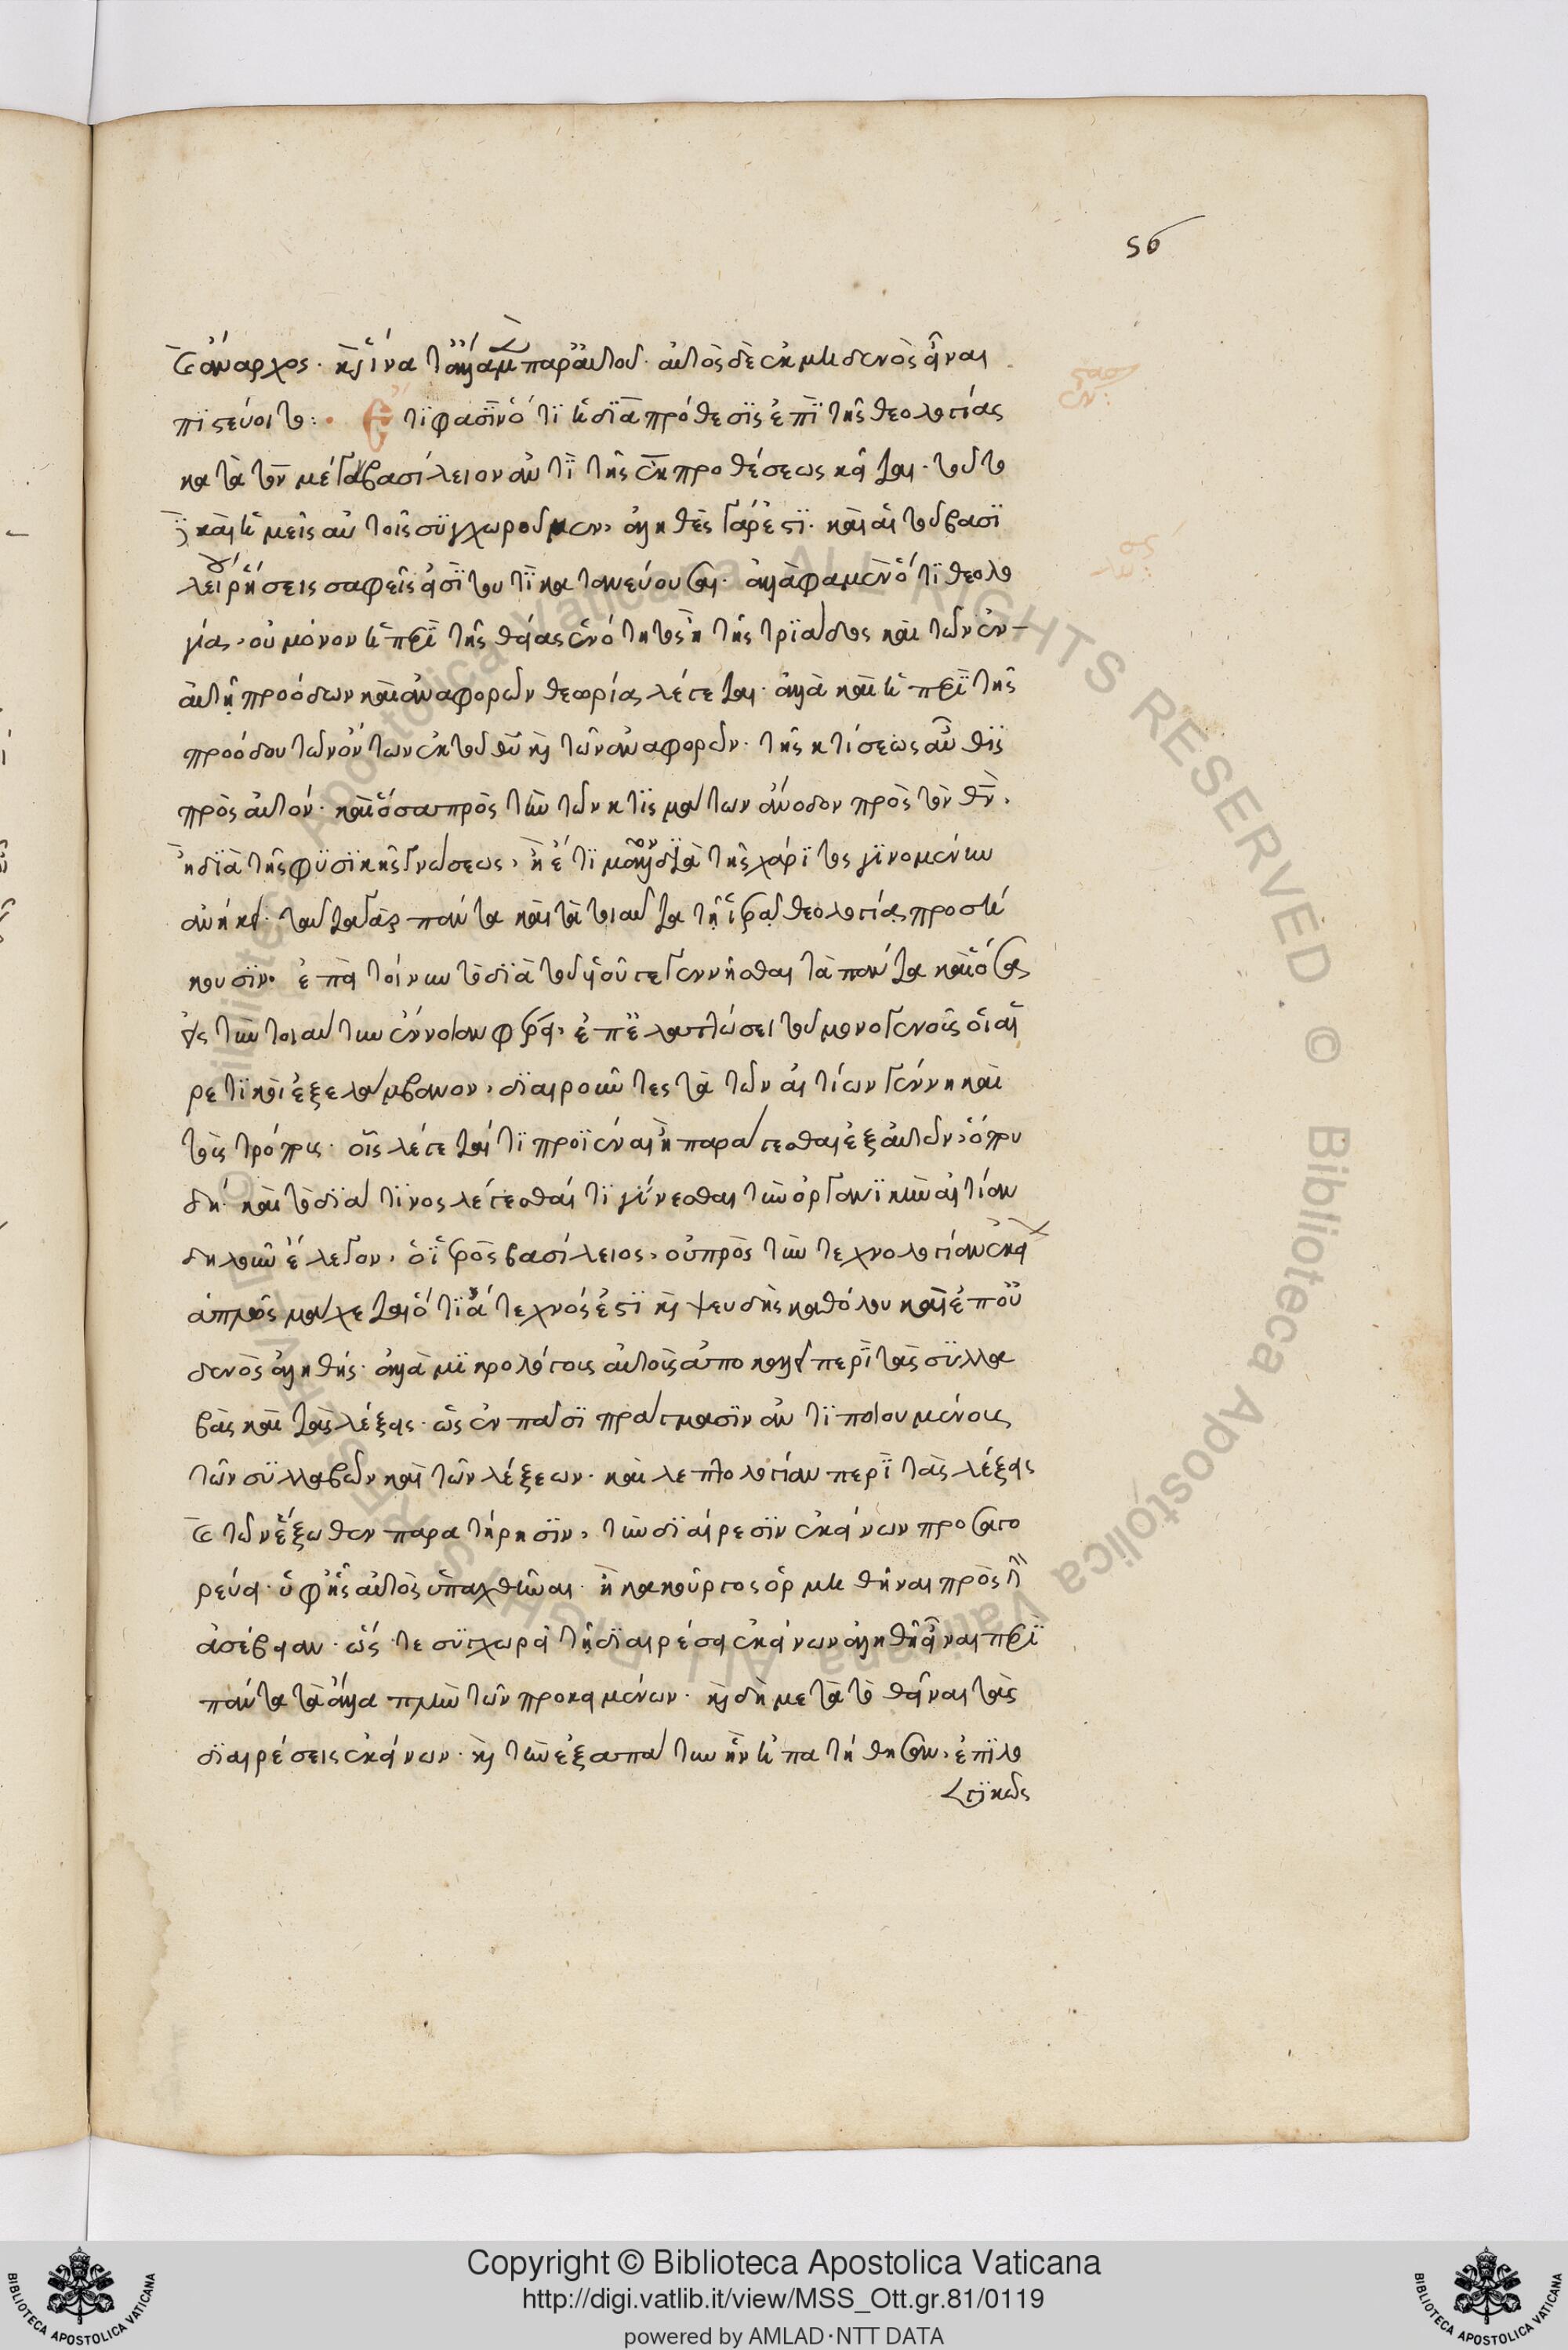 56
καὶ ἄναρχος. καὶ ἵνα τἄλλα μὲν παρ' αὐτοῦ. αὐτὸς δὲ ἐκ μηδενὸς εἶναι
πιστεύοιτο: Ἔτι φασὶν ὅτι ἡ διὰ πρόθεσις ἐπὶ τῆς θεολογίας
κατὰ τὸν μέγα βασίλειον ἀντὶ τῆς ἐκ προθέσεως κεῖται. τοῦτο
καὶ ἡμεῖς αὐτοῖς συγχωροῦμεν, ἀληθὲς γάρ ἐστι. καὶ αἱ τοῦ βασι
λείου ῥήσεις σαφεῖς εἰσὶ τουτὶ κατανεύουσαι. ἀλλά φαμεν ὅτι θεολο
γία, οὐ μόνον ἡ περὶ τῆς θείας ἑνότητος ἢ τῆς τριάδος καὶ τῶν ἐν
αὐτῇ προόδων καὶ ἀναφορῶν θεωρία λέγεται. ἀλλὰ καὶ ἡ περὶ τῆς
προόδου τῶν ὄντων ἐκ τοῦ θῦ καὶ τῶν ἀναφορῶν τῆς κτίσεως αὖθις
πρὸς αὐτόν. καὶ ὅσα πρὸς τὴν τῶν κτισμάτων ἄνοδον πρὸς τὸν θν,
ἢ διὰ τῆς φυσικῆς γνώσεως, ἢ ἔτι μᾶλλον διὰ τῆς χάριτος γινομένην
ἀνήκει. ταῦτα γὰρ πάντα καὶ τὰ τοιαῦτα τῇ ἱερᾷ θεολογίᾳ προσή
κουσιν. ἐπεὶ τοίνυν τὸ διὰ τοῦ υἱοῦ γεγεννῆσθαι τὰ πάντα καὶ ὅσα
εἰς τὴν τοιαύτην ἔννοιαν φέρει, ἐπ' ἐλαττώσει τοῦ μονογενοῦς οἱ αἱ
ρετικοὶ ἐξελάμβανον, διαιροῦντες τὰ τῶν αἰτίων γένη καὶ
τοὺς τρόπους οἷς λέγεταί τι προϊέναι ἢ παράγεσθαι ἐξ αὐτῶν, ὅπου
δὴ καὶ τὸ διά τινος λέγεσθαί τι γίνεσθαι τὴν ὀργανικὴν αἰτίαν
δηλοῦν ἔλεγον, ὁ ἱερὸς βασίλειος, οὐ πρὸς τὴν τεχνολογίαν ἐκεί
ἁπλῶς μάχεται ὅτι ἄτεχνός ἐστι καὶ ψευδὴς καθόλου καὶ ἐπ' οὐ
δενὸς ἀληθής. ἀλλὰ μικρολόγους αὐτοὺς ἀποκαλεῖ περὶ τὰς συλλα
βὰς καὶ τὰς λέξεις. ὡς ἐν πᾶσι πράγμασιν ἀντιποιουμένους
τῶν συλλαβῶν καὶ τῶν λέξεων. καὶ λεπτολογίαν περὶ τὰς λέξεις
καὶ τῶν ἔξωθεν παρατήρησιν, τὴν διαίρεσιν ἐκείνων προσαγο
ρεύει. ὑφ' ἧς αὐτὸς ὑπαχθῆναι. ἢ κακούργως ὁρμηθῆναι πρὸς
ἀσέβειαν. ὥστε συγχωρεῖ τῇ διαιρέσει ἐκείνων ἀληθῆ εἶναι περὶ
πάντα τὰ ἄλλα πλὴν τῶν προκειμένων. καὶ δὴ μετὰ τὸ θεῖναι τὰς
διαιρέσεις ἐκείνων. καὶ τὴν ἐξαπάτην ἣν ἠπατήθησαν, ἐπιλο
γικῶς
Copyright © Biblioteca Apostolica Vaticana
http://digi.vatlib.it/view/MSS_Ott.gr.81/0119
powered by AMLAD·NTT DATA